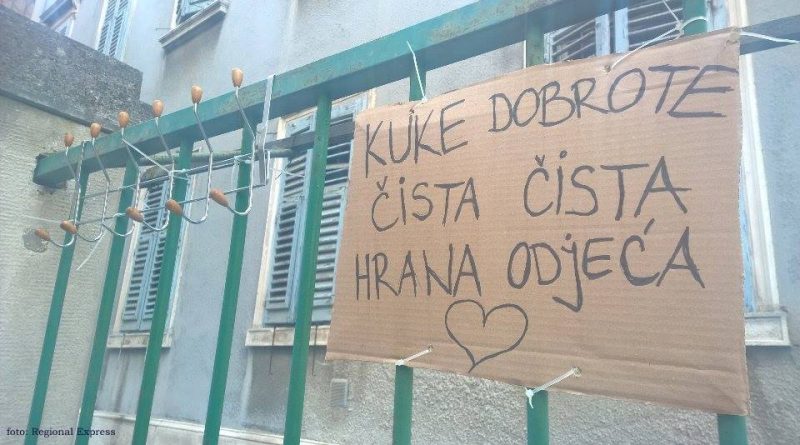 KUKE DOBROTE
ČISTA ČISTA
HRANA ODJEĆA
foto: Regional Express